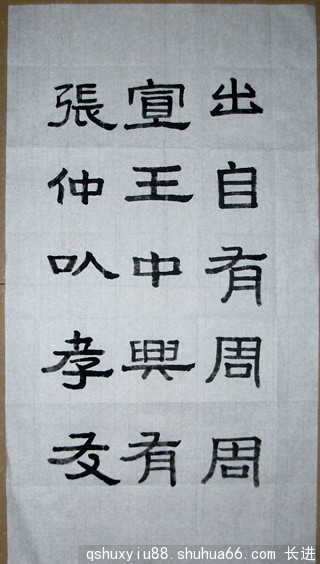 出自有周周
宣王中興有
張仲㕥孝友
qshuxyiu88.shuhua66.com 长进